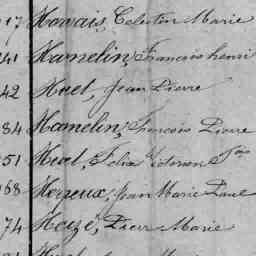 17 Horvais, Celestin Marie
41 Hamelin, François henri
42 Huet, Jean Pierre
84 Hamelin, François Pierre
51 Huet, Felix
68 Heneux, Jean Marie Paul
74 Houzé, Pierre Marie